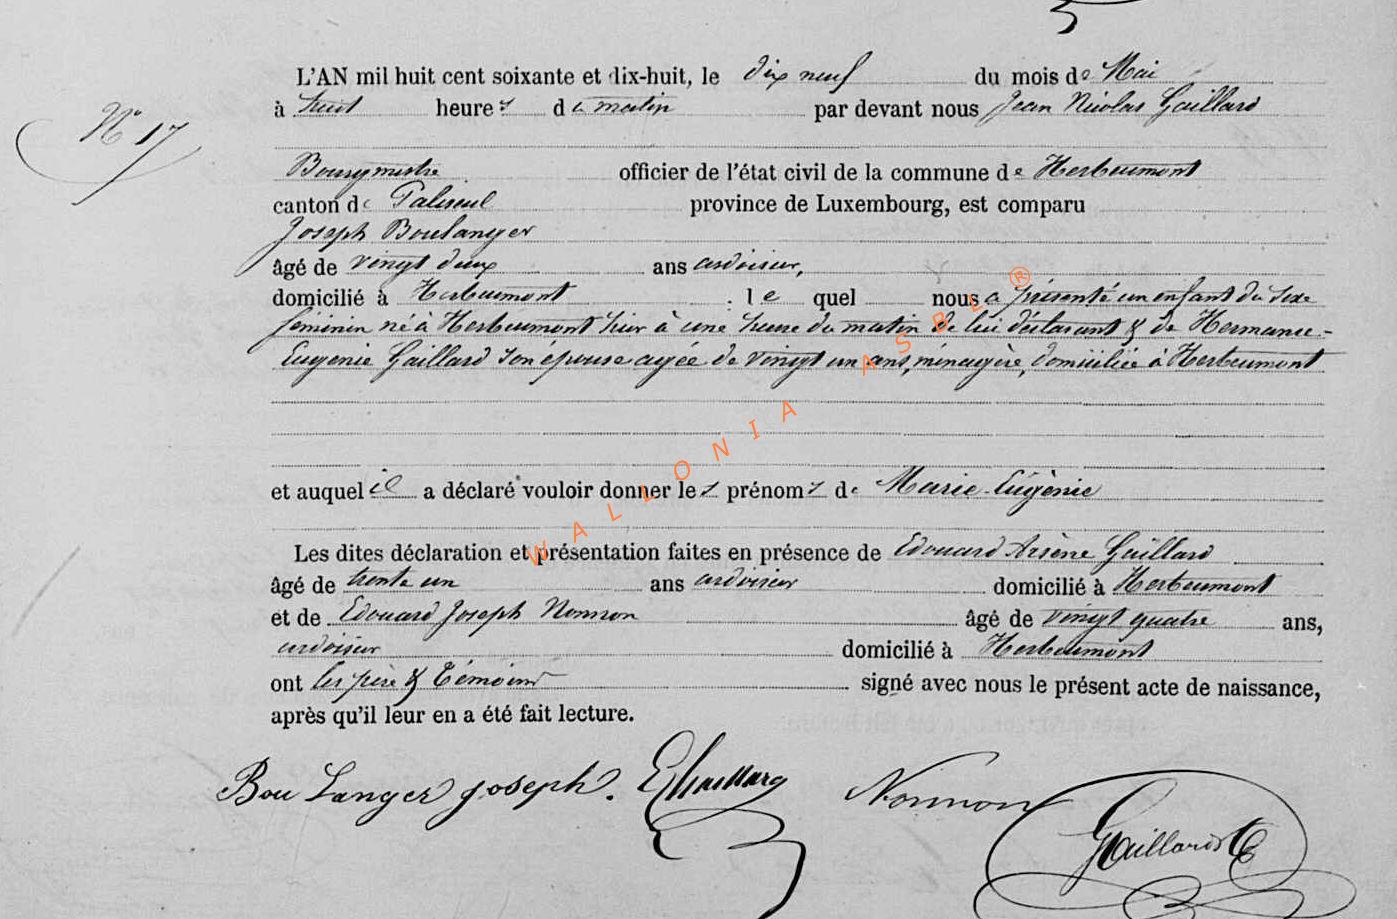 L'AN mil huit cent soixante et dix-huit, le dix neuf du mois de Mai
N° 17
à huit heures du matin par devant nous Jean Nicolas Gaillard
Bourgmestre officier de l'état civil de la commune de Herbeumont
canton de Paliseul province de Luxembourg, est comparu
Joseph Boulanger
âgé de vingt deux ans ardoisier,
domicilié à Herbeumont le quel nous a présenté un enfant du sexe
féminin né à Herbeumont hier à une heure du matin de lui déclarant & de Hermance-
Eugénie Gaillard son épouse agée de vingt un ans, ménagère, domiciliée à Herbeumont
et auquel il a déclaré vouloir donner les prénoms de Marie-Eugènie
Les dites déclaration et présentation faites en présence de Edouard Arsène Gaillard
âgé de trente un ans ardoisier domicilié à Herbeumont
et de Edouard Joseph Nonnon âgé de vingt quatre ans,
ardoisier domicilié à Herbeumont
ont les père & témoins signé avec nous le présent acte de naissance,
après qu'il leur en a été fait lecture.
Bou Langer joseph. EGaillard Nonnon Gaillard
WALLONIA ASBL ®